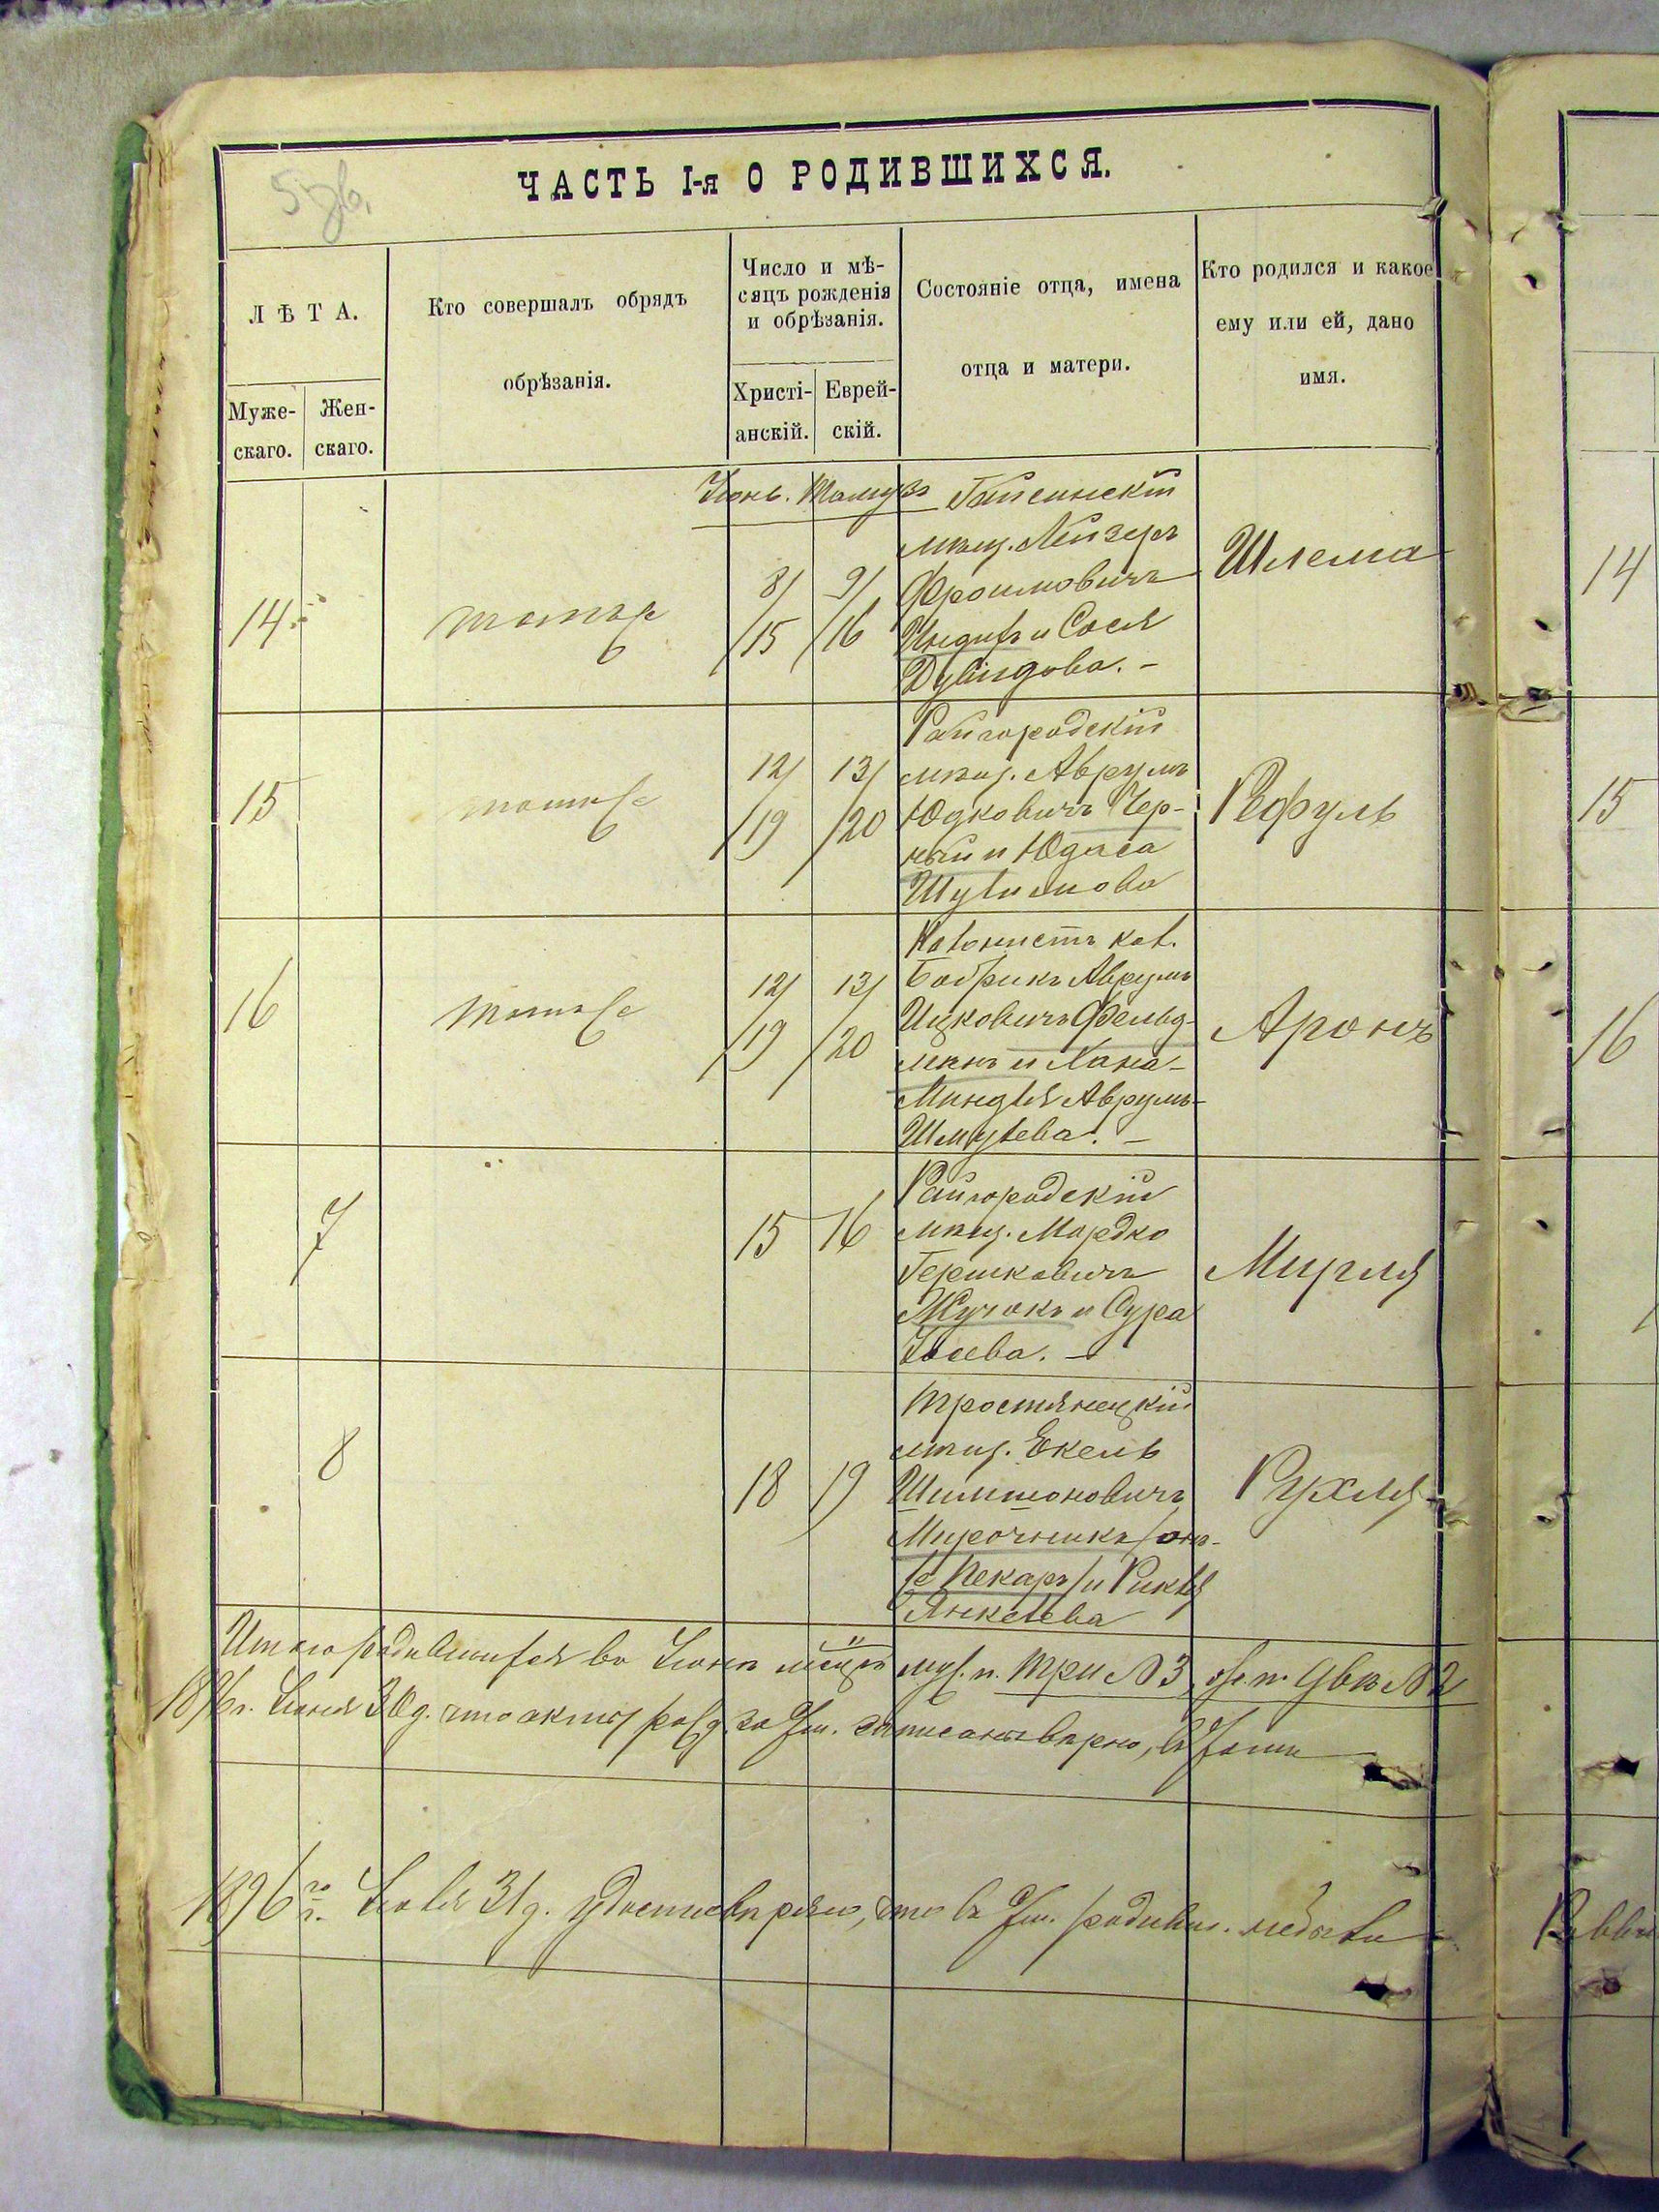 5 зв.
ЧАСТЬ I-я О РОДИВШИХСЯ.
ЛѢТА.
Муже-
скаго.
Жен-
скаго.
Кто совершалъ обрядъ
обрѣзанія.
Число и мѣ-
сяцъ рожденія
и обрѣзанія.
Христі-
анскій.
Еврей-
скій.
Состояніе отца, имена
отца и матери.
Кто родился и какое
ему или ей, дано
имя.
Июнь. Тамузъ
14
тотъ же
8/
/15
9/
/16
Гайсинскій
мѣщ. Лейзеръ
Фроимовичъ
и Сося
Дувидова. –
Шлема
15
тотъ же
12/
/19
13/
/20
Райгородскій
мѣщ. Аврумъ
Юдковичъ Чер-
ный и Юдаса
Шулимова
Рефуль
16
тотъ же
12/
/19
13/
/20
Колонистъ кол.
Бобрикъ Аврумъ
Ицковичъ Фельд-
манъ и Хана-
Миндля Аврумъ-
Шмулева. –
Аронъ
7
15
16
Райгородскій
мѣщ. Мордко
Гершковичъ
Жучокъ и Сура
Иосева. –
Мирля
8
18
19
Тростянецкій
мѣщ. Екель
Шимшоновичъ
Мирочникъ /онъ-
же Пекарь/ и Рикля
Янкелева
Рухля
Итого родившихся въ Июнѣ мсцѣ муж. п. три №3, же. п. двѣ №2
1896 г. Июня 30 д. что акты рожд. за записаны вѣрно, въ
1896 го г. Июля 31 д. удостовѣряю, что въ родивш. небыло
14
15
16